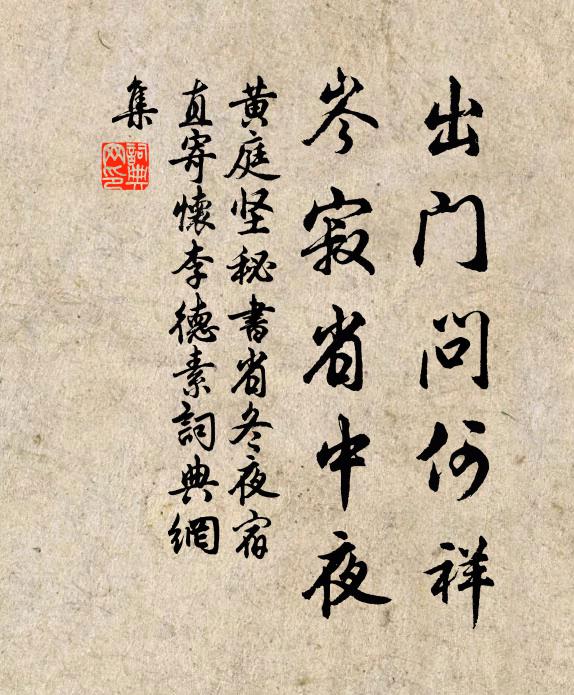 出门问何祥
岑寂省中夜
黄庭坚秘書省冬夜宿
直寄懷李德素詞典網
集
詞典
网印